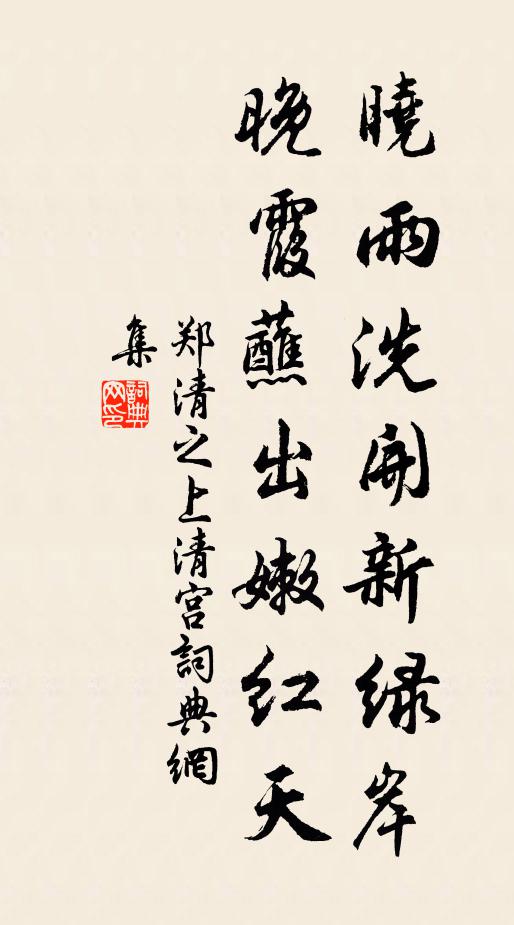 曉雨洗開新绿岸
晚霞蘸出嫩红天
郑清之上清宫詞典網
集
詞典网印